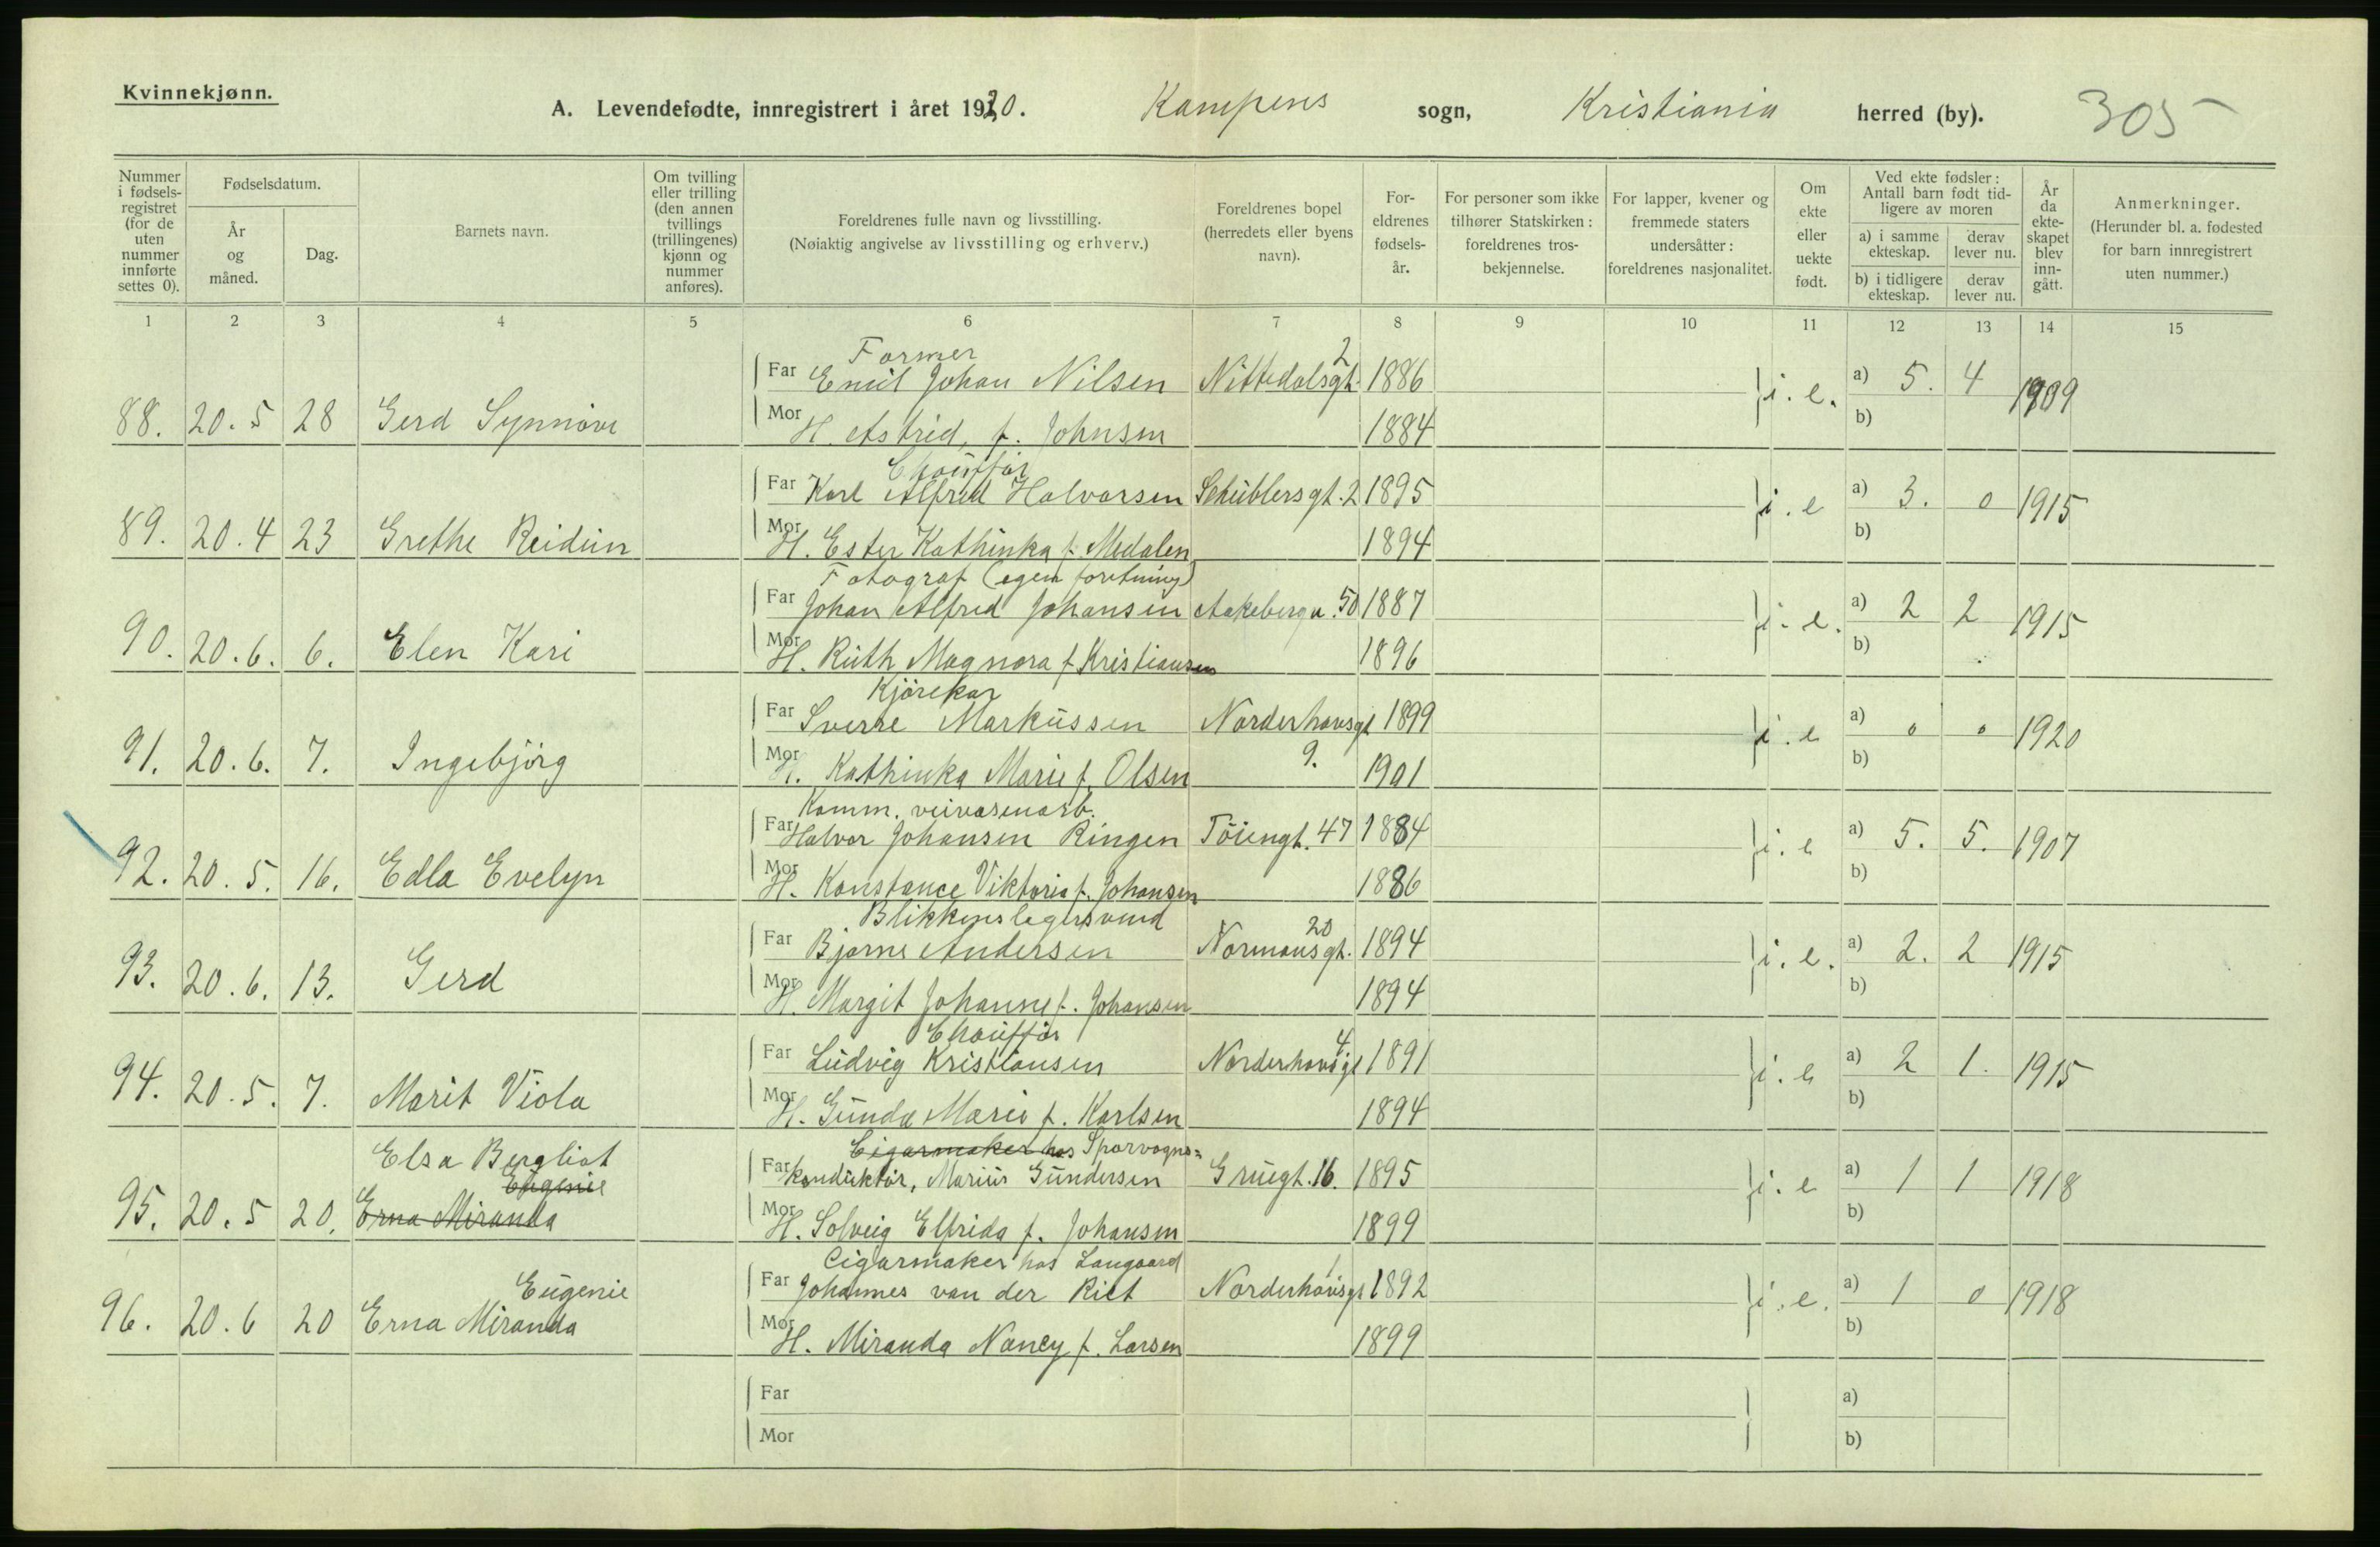 Kvinnekjønn.
A. Levendefødte, innregistrert i året 1920. Kampens sogn, Kristiania herred (by). 305
Nummer i fødselsregistret (for de uten nummer innførte settes 0).
Fødselsdatum.
År og måned.
Dag.
Barnets navn.
Om tvilling eller trilling (den annen tvillings (trillingenes) kjønn og nummer anføres).
Foreldrenes fulle navn og livsstilling.
(Nøiaktig angivelse av livsstilling og erhverv.)
Foreldrenes bopel (herredets eller byens navn).
Foreldrenes fødselsår.
For personer som ikke tilhører Statskirken: foreldrenes trosbekjennelse.
For lapper, kvener og fremmede staters undersåtter: foreldrenes nasjonalitet.
Om ekte eller uekte født.
Ved ekte fødsler: Antall barn født tidligere av moren
a) i samme ekteskap.
derav lever nu.
b) i tidligere ekteskap.
derav lever nu.
År da ekteskapet blev inngått.
Anmerkninger.
(Herunder bl. a. fødested for barn innregistrert uten nummer.)
1 2 3 4 5 6 7 8 9 10 11 12 13 14 15
Former
Far Emil Johan Nilsen Nittedalsgt. 2 1886
88. 20.5 28 Gerd Synnöve i.e. a) 5. 4 1909
Mor H. Astrid, f. Johnsen 1884 b)
Chaufför
Far Karl Alfred Halvorsen Schüblersgt. 2 1895
89. 20.4 23 Grethe Reidun i.e a) 3. 0 1915
Mor H. Ester Kathinka f. Medalen 1894 b)
Fotograf (egen foretning)
Far Johan Alfred Johansen Aakebergv. 50 1887
90. 20.6. 6. Elen Kari i.e. a) 2 2 1915
Mor H. Ruth Magnora f. Kristiansen 1896 b)
Kjörekar
Far Sverre Markussen Norderhovsgt 9. 1899
91. 20.6. 7. Ingebjörg i.e a) 0 0 1920
Mor H. Kathinka Marie f. Olsen 1901 b)
Komm. veivæsenarb.
Far Halvor Johansen Ringen Töiengt. 47 1884
92. 20.5. 16. Edla Evelyn i.e a) 5. 5. 1907
Mor H. Konstance Viktoria f. Johansen 1886 b)
Blikkenslagersvend
Far Bjarne Andersen Normansgt. 20 1894
93. 20.6. 13. Gerd i.e. a) 2. 2 1915
Mor H. Margit Johanne f. Johansen 1894 b)
Chaufför
Far Ludvig Kristiansen Norderhovsgt 4 1891
94. 20.5. 7. Marit Viola i.e a) 2 1. 1915
Mor H. Gunda Marie f. Karlsen 1894 b)
Cigarmaker hos Sporvogns=
Far konduktör, Marius Gundersen Gruegt. 16. 1895
Elsa Bergliot
Eugenie
95. 20.5 20. Erna Miranda i.e a) 1 1 1918
Mor H. Solveig Elfrida f. Johansen 1899 b)
Cigarmaker hos Langaard
Far Johannes van der Riet Norderhovsgt 1 1892
Eugenie
96. 20.6 20 Erna Miranda i.e. a) 1 0 1918
Mor H. Miranda Nancy f. Larsen 1899 b)
Far a)
Mor b)